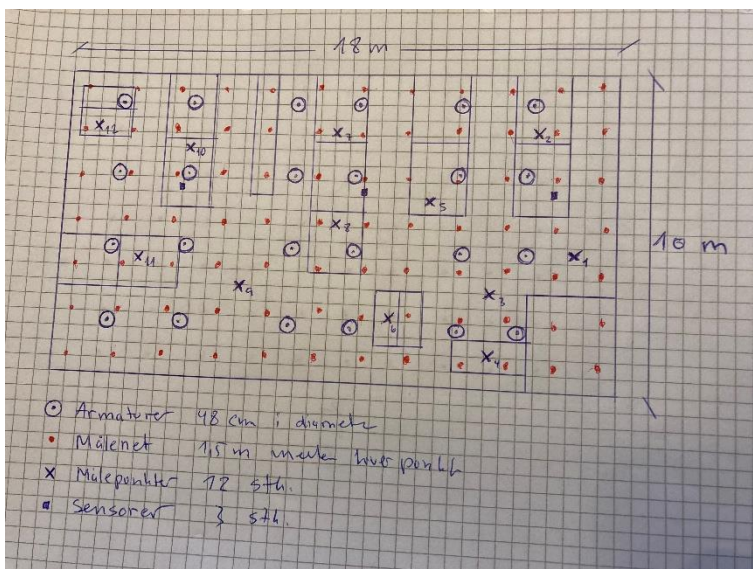 18 m
10 m
x12
x10
x7
x2
x5
x8
x11
x1
x9
x3
x6
x4
Armaturer 48 cm i diameter
Målenet 1,5 m mellem hver punkt
Målepunkter 12 stk.
Sensorer 3 stk.